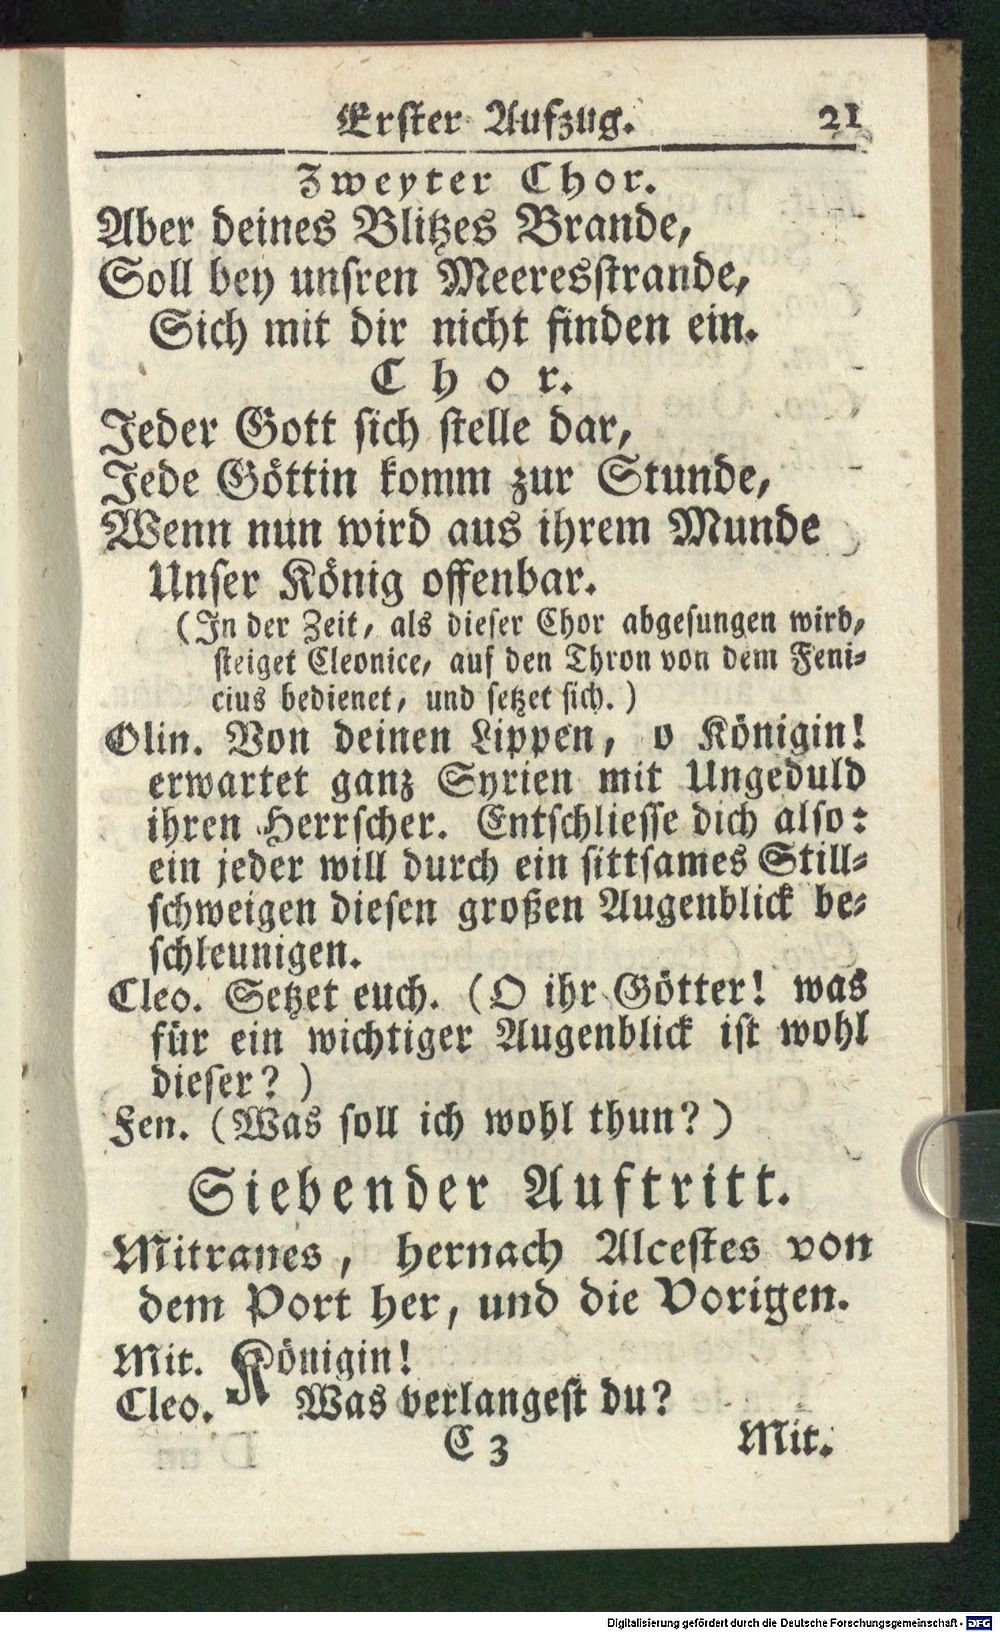 Erster Aufzug. 21
Zweyter Chor.
Aber deines Blitzes Brande,
Soll bey unsren Meeresstrande,
Sich mit dir nicht finden ein.
Chor.
Jeder Gott sich stelle dar,
Jede Göttin komm zur Stunde,
Wenn nun wird aus ihrem Munde
Unser König offenbar.
(In der Zeit, als dieser Chor abgesungen wird,
steiget Cleonice, auf den Thron von dem Feni-
cius bedienet, und setzet sich.)
Olin. Von deinen Lippen, o Königin!
erwartet ganz Syrien mit Ungeduld
ihren Herrscher. Entschliesse dich also:
ein jeder will durch ein sittsames Still-
schweigen diesen großen Augenblick be-
schleunigen.
Cleo. Setzet euch. (O ihr Götter! was
für ein wichtiger Augenblick ist wohl
dieser?)
Fen. (Was soll ich wohl thun?)
Siebender Auftritt.
Mitranes, hernach Alcestes von
dem Port her, und die Vorigen.
Mit. Königin!
Cleo. Was verlangest du?
C 3 Mit.
Digitalisierung gefördert durch die Deutsche Forschungsgemeinschaft - DFG